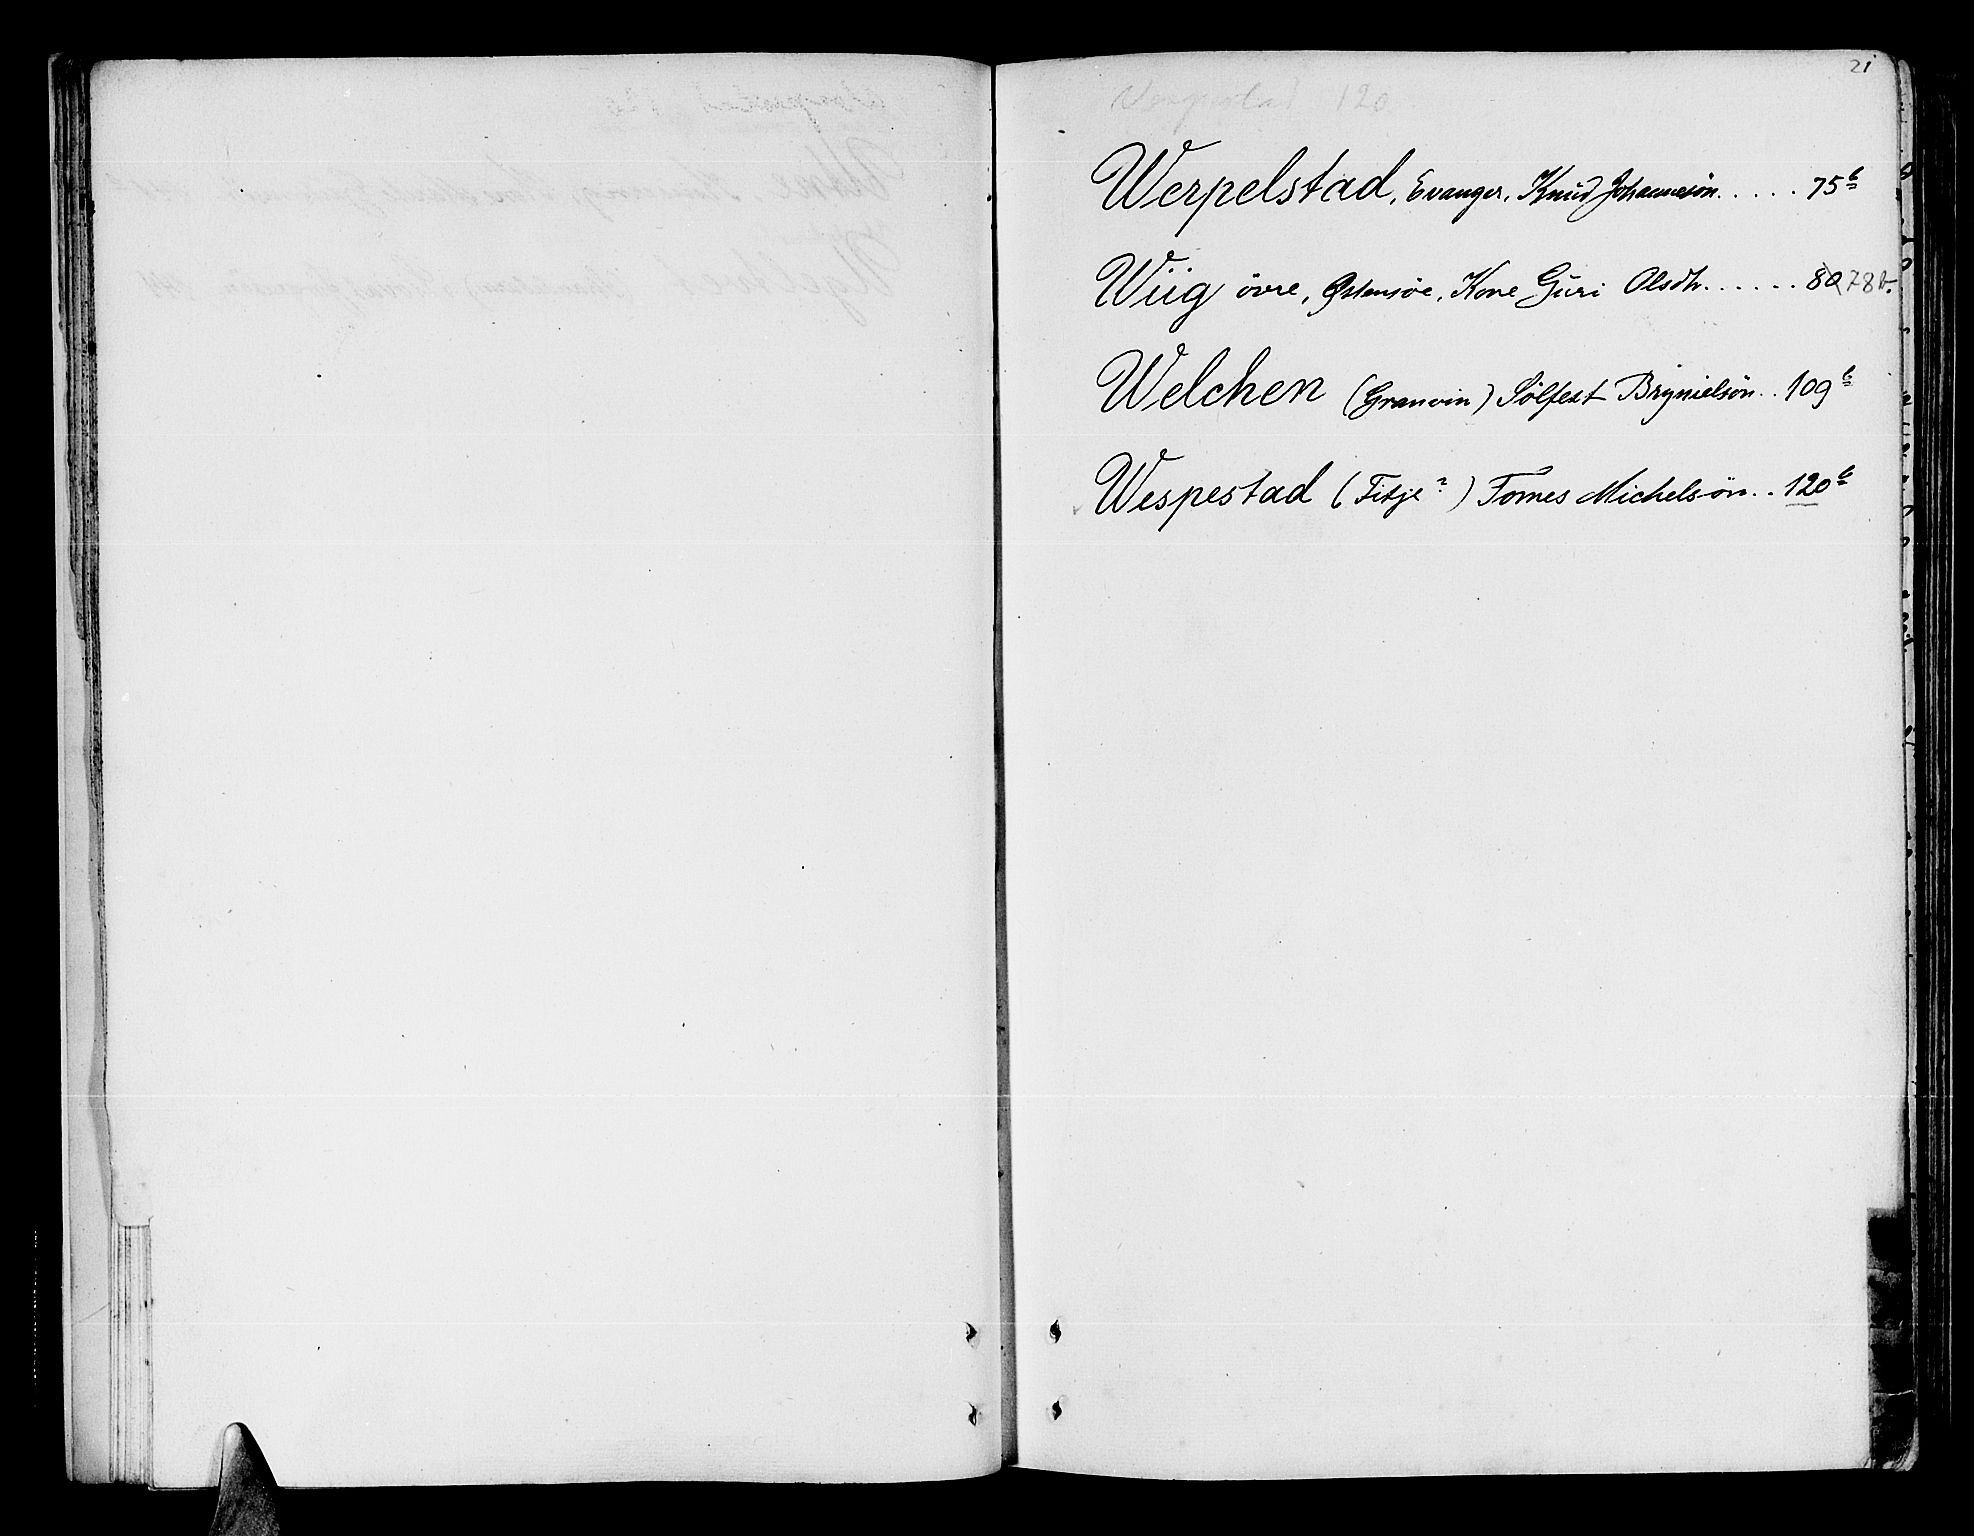 21
120
Werpelstad, Evanger, Knud Johannesön..... 75b
Wiig övre, Østensöe, Kone Guri Olsdtr...... 80 78b.
Welchen (Granvin) Sölfest Brynielsön.. 109b
Wespestad (Fitje?) Tomes Michelsön.. 120b